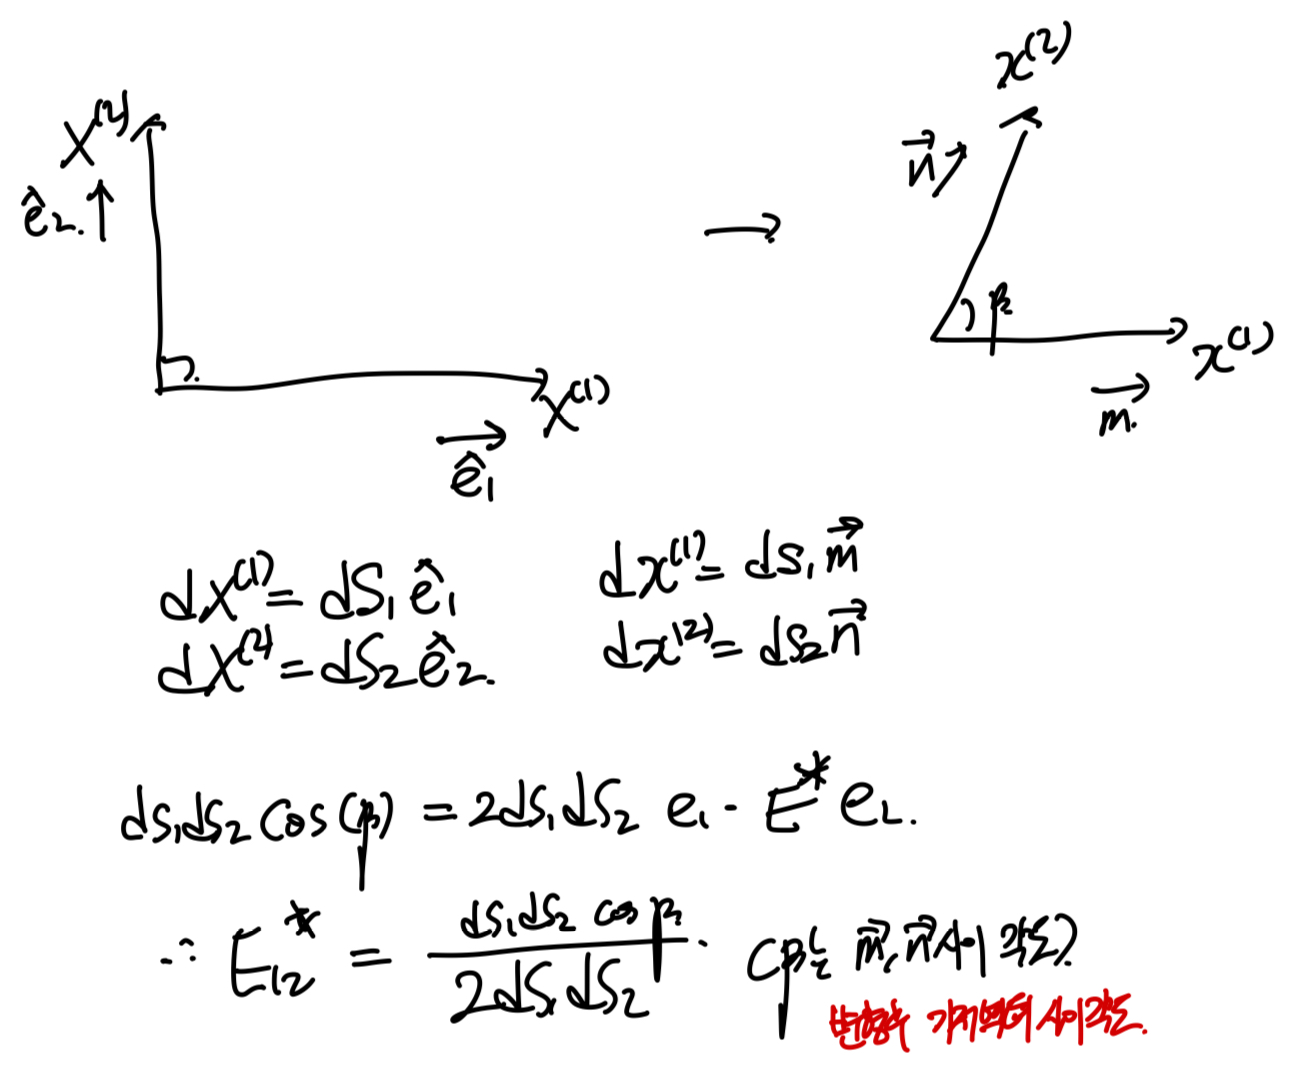 X⁽²⁾
ê₂.
X⁽¹⁾
ê₁
→
x⁽²⁾
n⃗
β
x⁽¹⁾
m⃗
dX⁽¹⁾ = dS₁ ê₁
dX⁽²⁾ = dS₂ ê₂.
dx⁽¹⁾ = ds₁ m⃗
dx⁽²⁾ = ds₂ n⃗
ds₁ds₂ cos(β) = 2dS₁dS₂ e₁ · E* e₂.
∴ E₁₂* = ds₁ds₂ cosβ / 2dS₁dS₂ . (β는 m⃗, n⃗ 사이 각도)
변형후 기저벡터 사이각도.